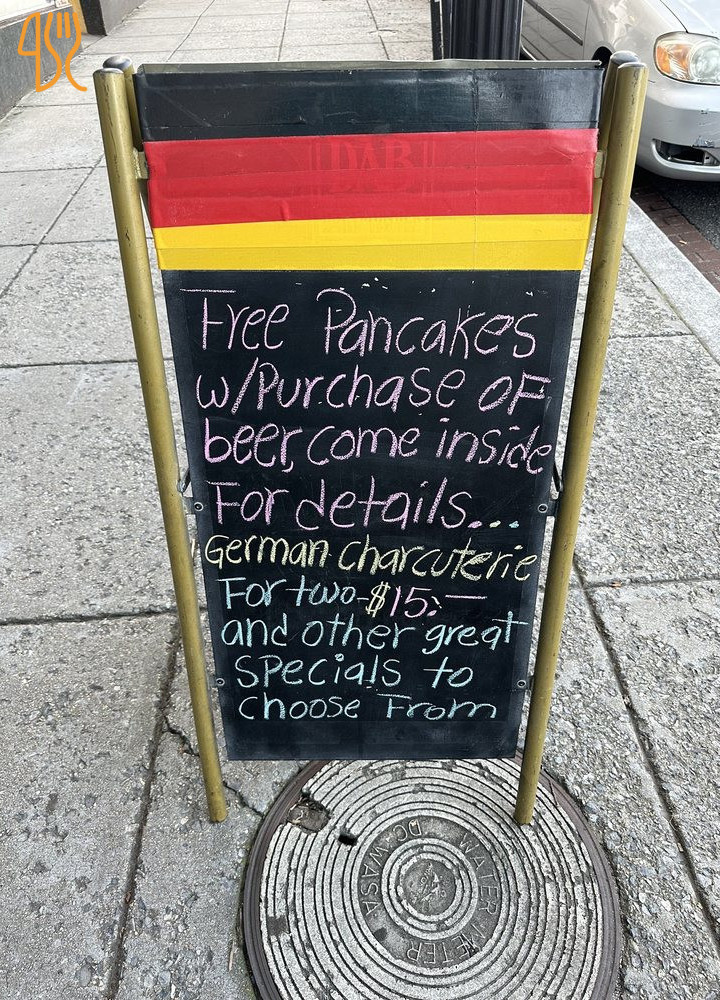 DAB
Free Pancakes
w/Purchase of
beer, come inside
For details...
German charcuterie
For two-$15.-
and other great
specials to
choose From
DC WASA
WATER METER